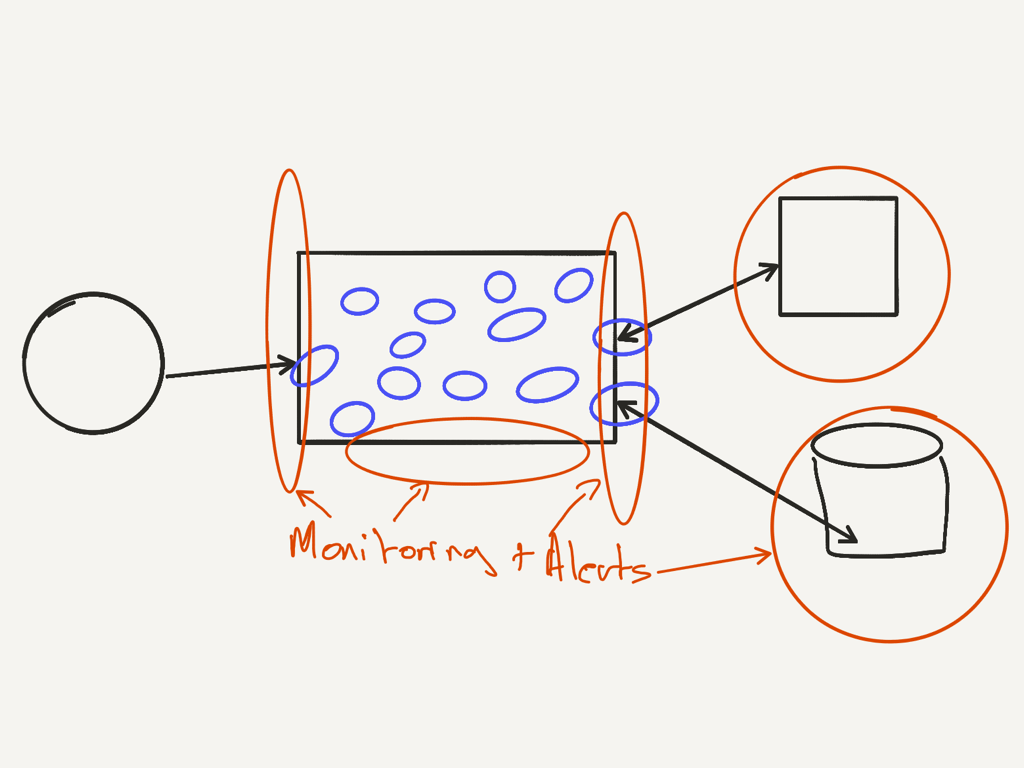 Monitoring + Alerts